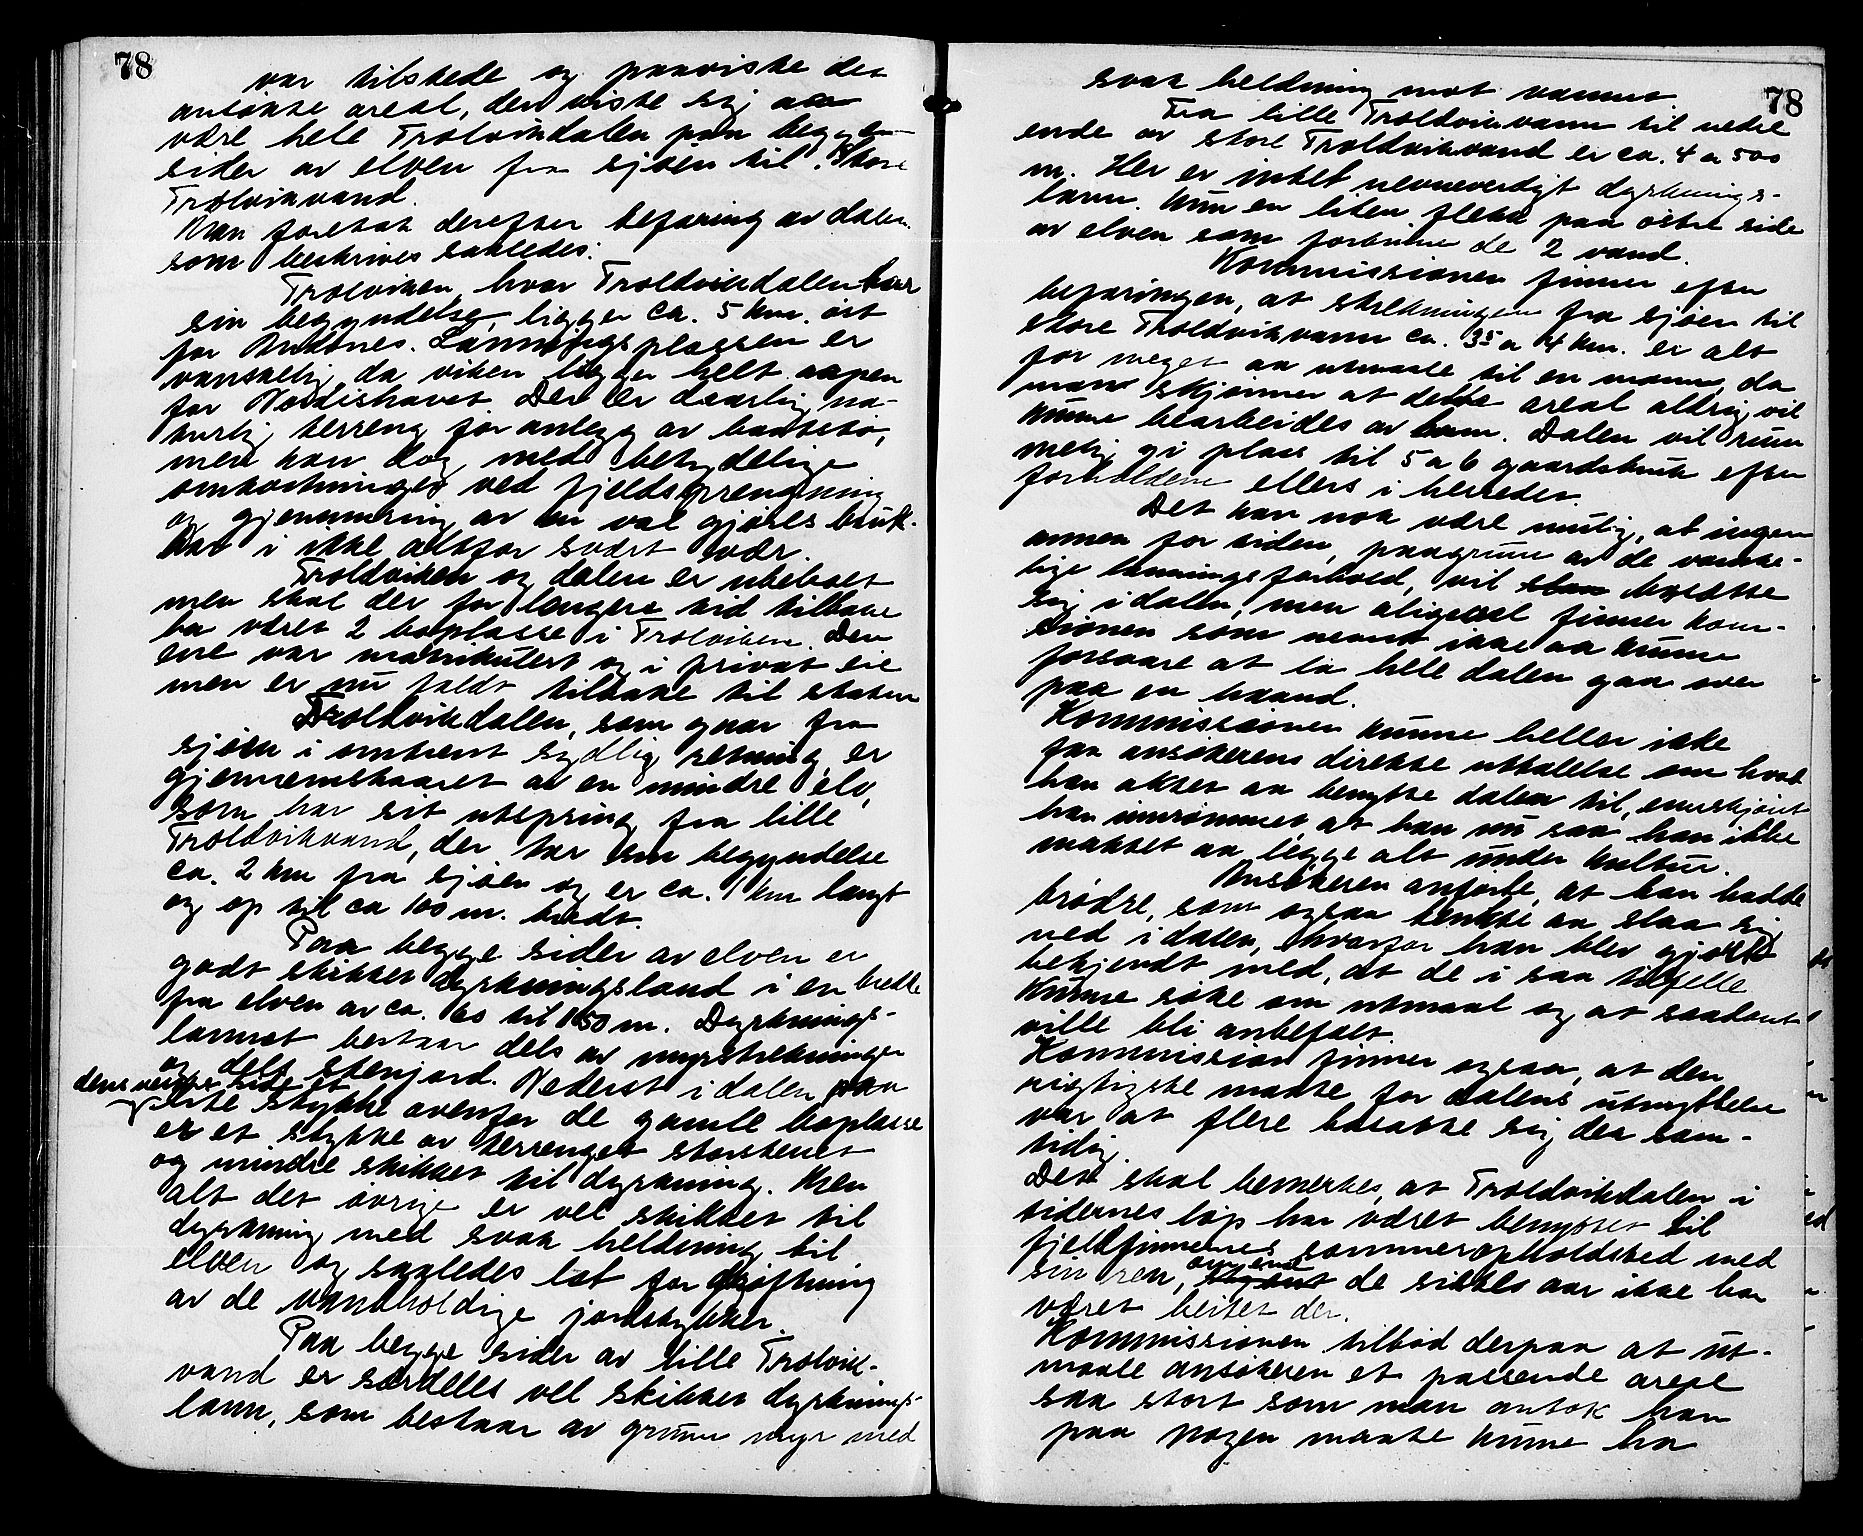 78
var tilstede og paaviste det
ansøkte areal, der viste sig aa
være hele Trolvikdalen paa begge
sider av elven fra sjøen til Store
Trolvikvand.
Man foretok derefter befaring av dalen
som beskrives saaledes:
Trolviken, hvor Troldvikdalen har
sin begyndelse, ligger ca. 5 km. øst
for Andsnes. Lanningsplassen er
vanskelig, da viken ligger helt aapen
for Nordishavet. Der er daarlig na-
turlig terreng for anlegg av baatstø,
men kan dog med betydelige
omkostninger ved fjeldsprengning
og gjenmuring av en vol gjøres bruk-
bar i ikke altfor svært vær.
Troldviken og dalen er ubeboet
men skal der for lengere tid tilbake
ha været 2 boplasse i Trolviken. Den
ene var matrikulert og i privat eie
men er nu faldt tilbake til staten
Troldvikdalen, som gaar fra
sjøen i omtrent sydlig retning, er
gjennemskaaret av en mindre elv,
som har sit utspring fra lille
Troldvikvand, der tar sin begyndelse
ca. 2 km fra sjøen og er ca. 1 km langt
og op til ca 100 m. bredt.
Paa begge sider av elven er
godt skikket dyrkningsland i en bredde
fra elven av ca. 60 til 150 m. Dyrknings-
lannet bestaar dels av myrstrekninger
og dels stenjord. Nederst i dalen paa
dens side et
lite stykke ovenfor de gamle boplasse
er et stykke av terrenget storstenet
og mindre skikket til dyrkning. Men
alt det øvrige er vel skikket til
dyrkning med svak heldning til
elven og saaledes let for drøftning
av de vandholdige jordstykker.
Paa begge sider av lille Trolvik-
vand er særdeles vel skikket dyrknings-
lann, som bestaar av grunn myr med
78
svak heldning mot vannet.
Fra lille Troldvikvann til nedre
ende av store Troldvikvand er ca. 4 a 500
m. Her er intet nevneverdigt dyrknings-
lann. Kun en liten flekk paa østre side
av elven som forbinner de 2 vand.
Kommissionen finner efter
befaringen, at strekningen fra sjøen til
store Troldvikvann ca. 35 a 4 km. er alt
for meget aa utmaale til en mann, da
man skjønner at dette areal aldrig vil
kunne bearbeides av ham. Dalen vil rum
melig gi plass til 5 a 6 gaardsbruk efter
forholdene ellers i herredet.
Det kan nok være mulig, at ingen
annen for tiden, paagrunn av de vanske-
lige lanningsforhold, vil bosætte
sig i dalen, men aligevel finner kom-
sionen som nevnt ikke aa kunne
forsvare at la hele dalen gaa over
paa en haand.
Kommissionen kunne heller ikke
faa ansøkerens direkte uttalelse om hvad
han aktet aa benytte dalen til, enskjønt
han innrømmet, at han nu saa han ikke
maktet aa legge alt under kultur.
Ansøkeren anførte, at han hadde
brødre, som ogsaa tenkte aa slaa sig
ned i dalen, hvorfor han blev gjort
bekjendt med, at de i saa tilfelle
kunne søke om utmaal og at saadant
ville bli anbefalt.
Kommission finner ogsaa, at den
rigtigste maate for dalens utnyttelse
var at flere bosatte sig der sam-
tidig.
Det skal bemerkes, at Troldvikdalen i
tidernes løp har været benyttet til
fjeldfinnernes sommeropholdsted med
sin ren, om end de sidste aar ikke har
været beitet der.
Kommissionen tilbød derpaa at ut-
maale ansøkeren et passende areal
saa stort som man antok han
paa nogen maate kunne ha